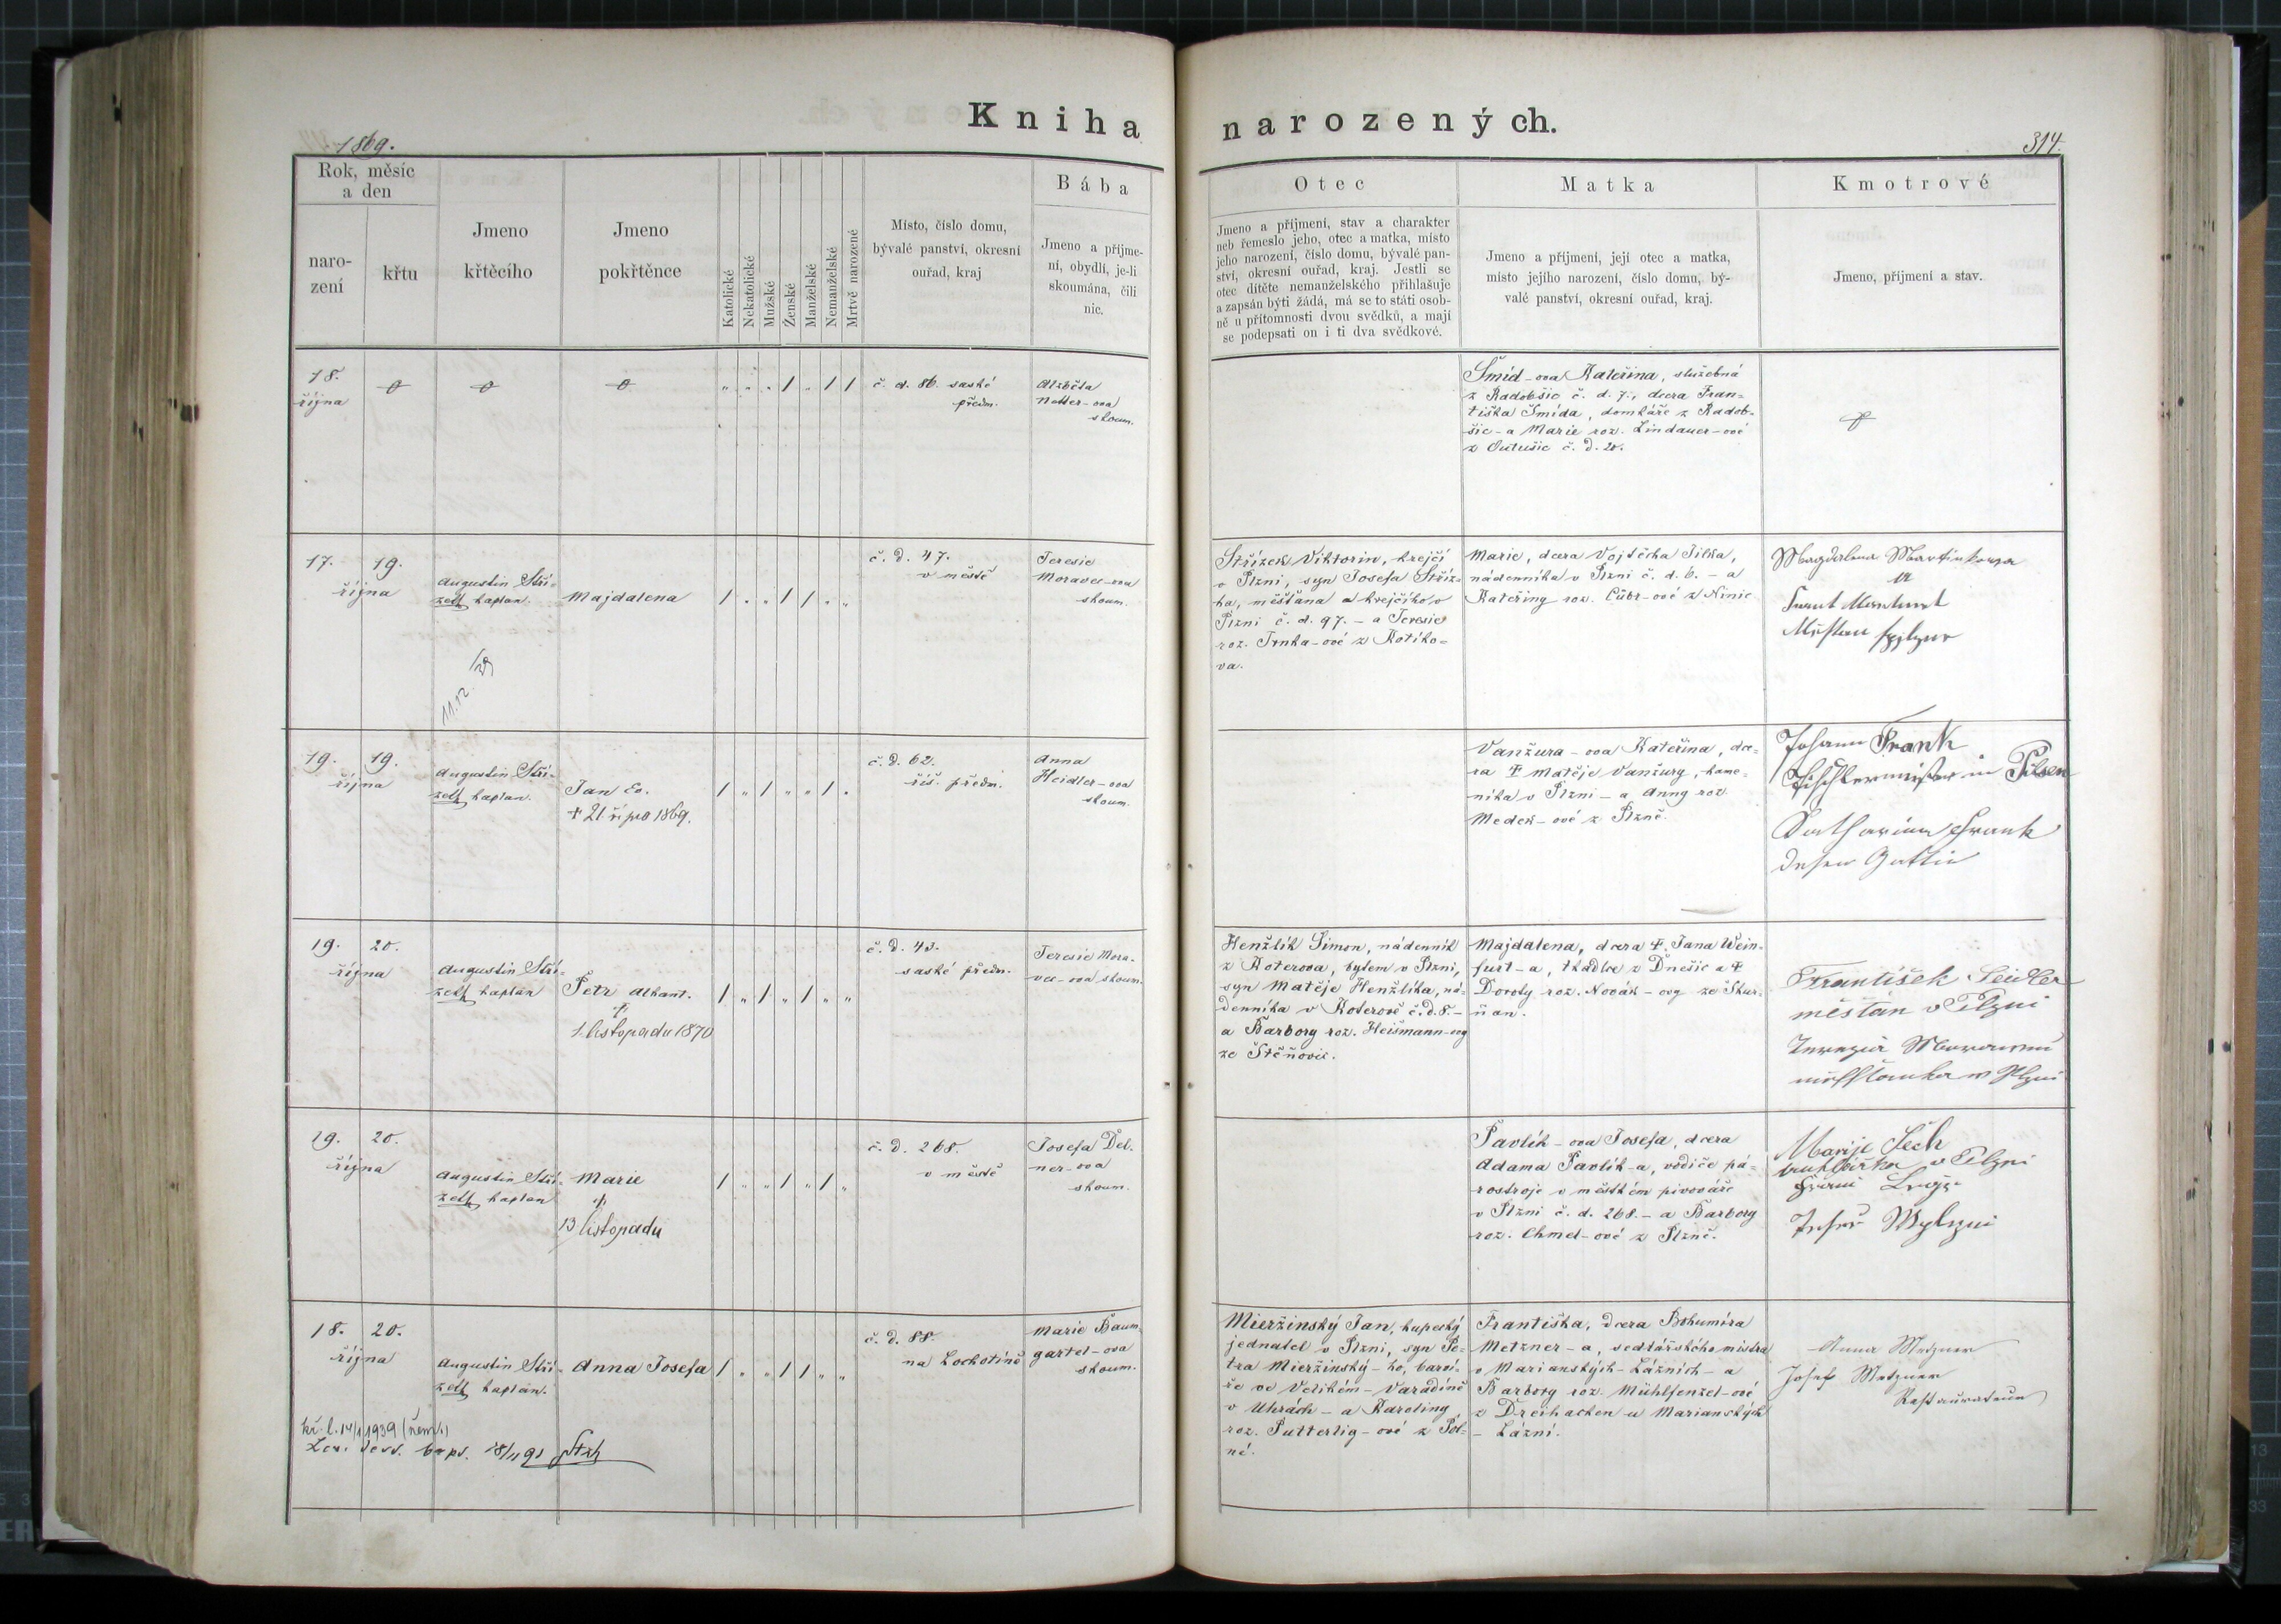 Kniha narozených.
1869.
314.
Rok, měsíc
a den
naro-
zení
křtu
Jmeno
křtěcího
Jmeno
pokřtěnce
Katolické
Nekatolické
Mužské
Ženské
Manželské
Nemanželské
Mrtvě narozené
Místo, číslo domu,
bývalé panství, okresní
ouřad, kraj
Bába
Jmeno a příjme-
ní, obydlí, je-li
skoumána, čili
nic.
Otec
Jmeno a příjmení, stav a charakter
neb řemeslo jeho, otec a matka, místo
jeho narození, číslo domu, bývalé pan-
ství, okresní ouřad, kraj. Jestli se
otec dítěte nemanželského přihlašuje
a zapsán býti žádá, má se to státi osob-
ně u přítomnosti dvou svědků, a mají
se podepsati on i ti dva svědkové.
Matka
Jmeno a příjmení, její otec a matka,
místo jejího narození, číslo domu, bý-
valé panství, okresní ouřad, kraj.
Kmotrové
Jmeno, příjmení a stav.
18.
října
č. d. 86. saské
předm.
Alžběta
Netter-ova
skoum.
Šmíd-ova Kateřina, služebná
z Radobšic č. d. 7., dcera Fran-
tiška Šmída, domkáře z Radob-
šic - a Marie roz. Lindauer-ové
z Outušic č. d. 20.
17. 19.
října
Augustin Stří-
zek kaplan.
11.12. 29
Majdalena
č. d. 47.
v městě
Teresie
Moravec-ova
skoum.
Střízek Viktorin, krejčí
v Plzni, syn Josefa Stříz-
ka, měšťana a krejčího v
Plzni č. d. 97. - a Teresie
roz. Trnka-ové z Kotíko-
va.
Marie, dcera Vojtěcha Jílka,
nádenníka v Plzni č. d. 6. - a
Kateřiny roz. Cübr-ové z Ninic
Magdalena Martinkowa
19. 19.
října
Augustin Stří-
zek kaplan.
Jan Ev.
† 21 října 1869.
č. d. 62.
říš. předm.
Anna
Heidler-ova
skoum.
Vanžura-ova Kateřina, dce-
ra † Matěje Vanžury, kame-
níka v Plzni - a Anny roz.
Medek-ové z Plzně.
Johann Frank
Tischlermeister in Pilsen
Katharina Frank
dessen Gattin
19. 20.
října
Augustin Stří-
zek kaplan
Petr Alkant.
†
1. listopadu 1870
č. d. 43.
saské předm.
Teresie Mora-
vec-ova skoum.
Henžlík Šimon, nádenník
z Koterova, bytem v Plzni,
syn Matěje Henžlíka, ná-
denníka v Koterově č. d. 8. -
a Barbory roz. Heišmann-ovy
ze Štěňovic.
Majdalena, dcera †. Jana Wein-
furt-a, tkadlce z Dnešic a †
Doroty roz. Novák-ovy ze Skur-
ňan.
František Seidler
měštan v Plzni
19. 20.
října
Augustin Stří-
zek kaplan
Marie
†
13 listopadu
č. d. 268.
v městě
Josefa Del-
ner-ova
skoum.
Pavlík-ova Josefa, dcera
Adama Pavlík-a, vodiče pá-
rostroje v městkém pivováře
v Plzni č. d. 268. - a Barbory
roz. Chmel-ové z Plzně.
Marije Sech
v Plzni
18. 20.
října
Augustin Stří-
zek kaplan.
Anna Josefa
č. d. 88.
na Lochotíně
Marie Baum-
gartel-ova
skoum.
Mieržinský Jan, kupecký
jednatel v Plzni, syn Pe-
tra Mieržinský-ho, barví-
ře ve Velikém-Varadíně
v Uhrách - a Karoliny
roz. Putterlig-ové z Pol-
né.
Františka, dcera Bohumíra
Metzner-a, sedlářského mistra
v Marianských-Lázních - a
Barbory roz. Mühlfenzel-ové
z Dreihacken u Marianských
- Lázní.
Anna Metzner
Josef Metzner
Restaurateur
kř. l. 14/1 1939 (něm.)